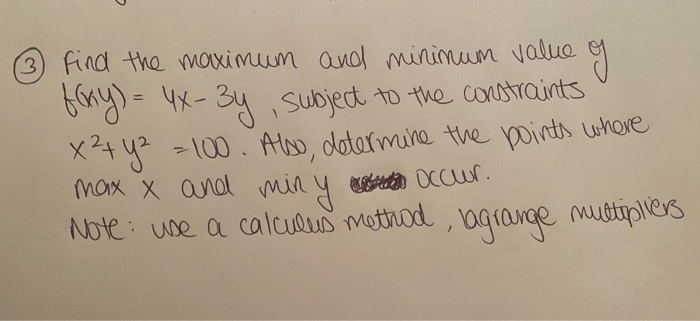 ③ Find the maximum and minimum value of
f(x,y) = 4x - 3y, subject to the constraints
x² + y² = 100. Also, determine the points where
max x and min y occur.
Note: use a calculus method, lagrange multipliers